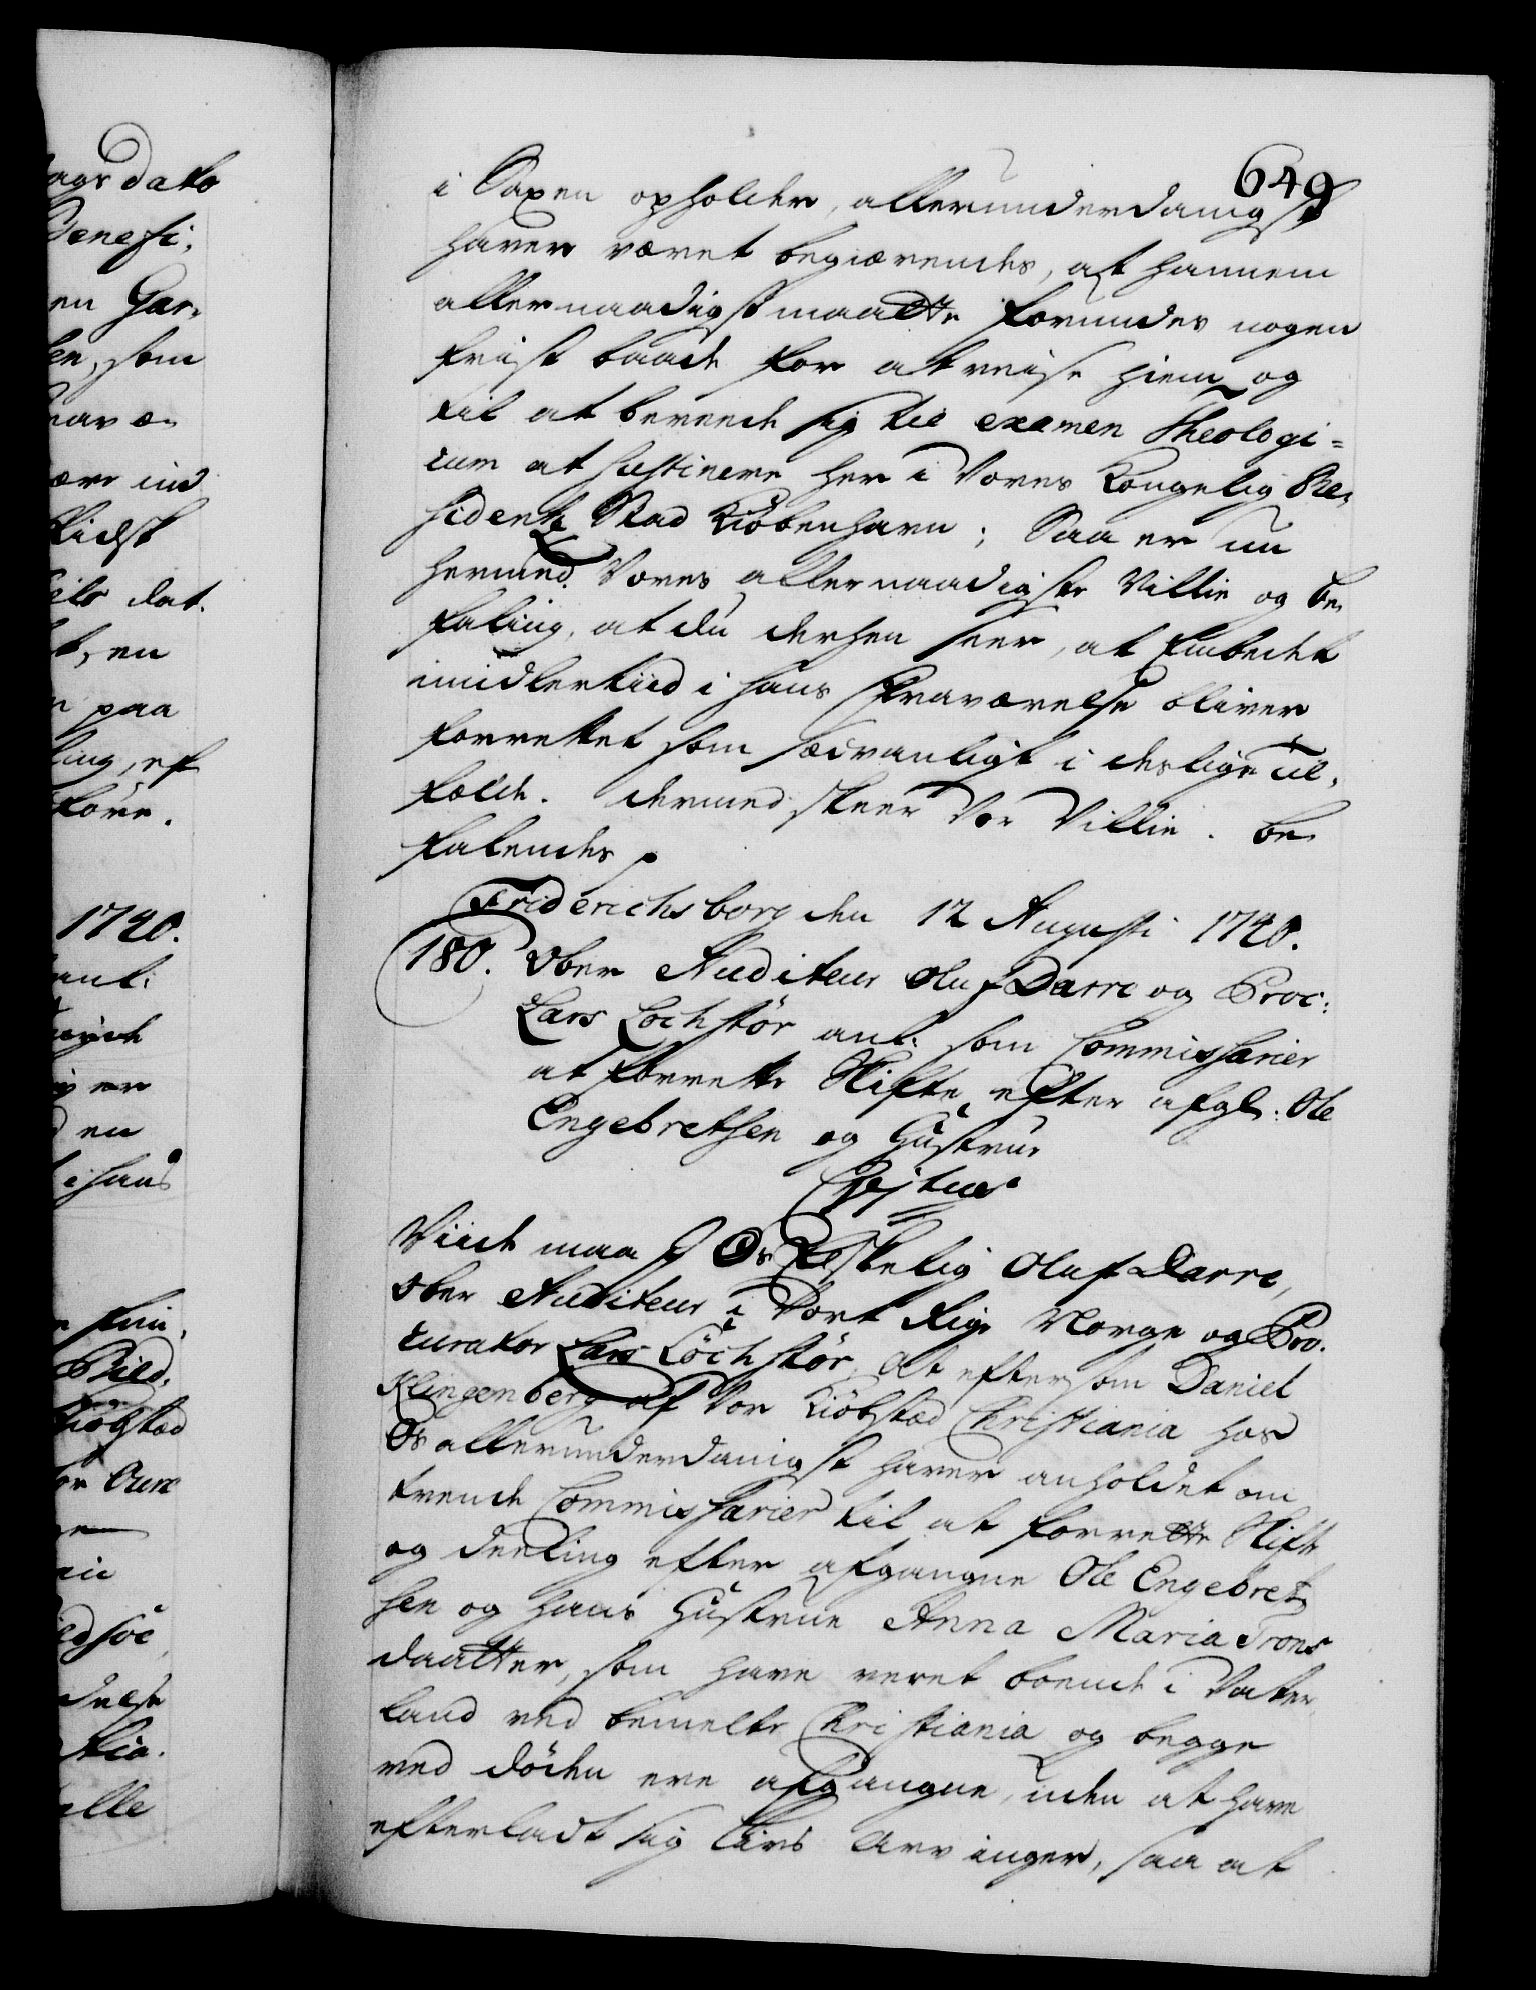 649
i Saxen opholder, allerunderdanigst
haver været begiærendes, at hannem
allernaadigst maatte forundes nogen
frist baade for at reise hiem og
til at bereede sig til examen Theologi=
cum at sustinere her i Vores Kongelig Re,
sidentz Stad Kiøbenhavn; Saa er nu
hermed Vores allernaadigste Villie og be,
faling, at du dersom seer, at Embedet
imidlertiid i hans Fraværelse bliver
forrettet som sædvanligt i deslige Til,
fælde. dermed skeer Vor Villie. be,
falendes
Friderichsborg den 12 Augusti 1740.
180. Ober Auditeur Oluf Darre og Proc:
Lars Lochstør ant: som Commissarier
at forrette Skifte efter afgl: Ole
Engebretsen og Hustrue
Viide maa I Os Elskelig Oluf Darre,
Ober Auditeur i Vort Rige Norge og Pro,
curator Lars Löchstør, at eftersom Daniel
Klingenberg af Vor Kiøbstæd Christiania hos
Os allerunderdanigst haver anholdet om
trende Commissarier til at forrette Skifte
og deeling efter afgangne Ole Engebret,
sen og hans Hustrue Anna Maria Trons
daatter, som have veret boende i Vater,
land ved bemelte Christiania og begge
ved døden ere afgangne, uden at have
efterladt sig Livs Arvinger, saa at
ags dato
Benefi,
en Gar,
en, som
1740.
paa
Kiøbstæd